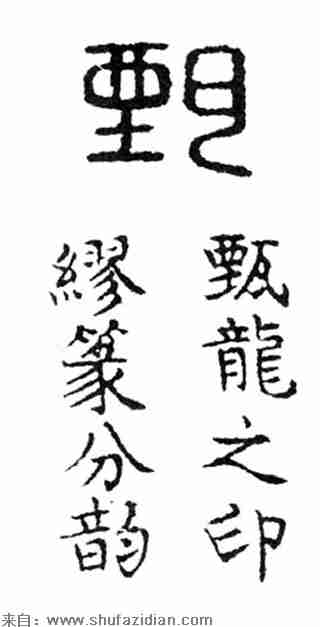 甄
甄龍之印
繆篆分韵
来自：www.shufazidian.com